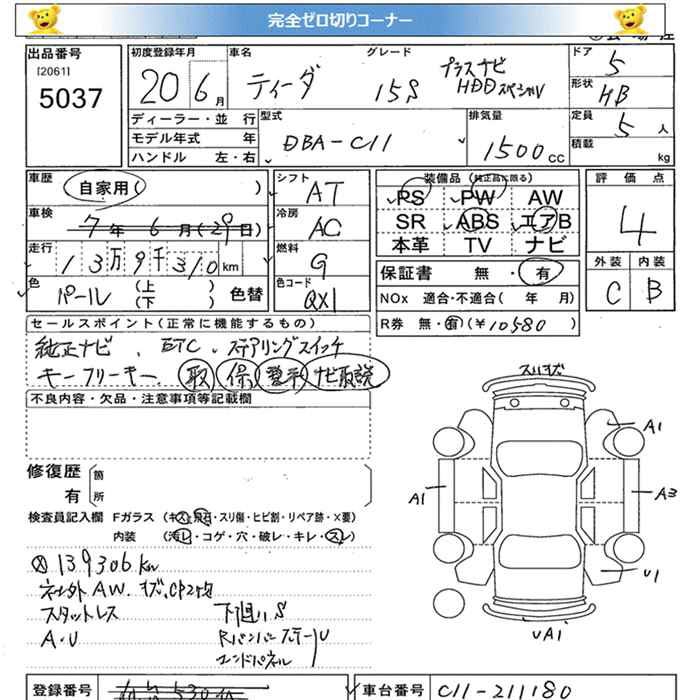 完全ゼロ切りコーナー
出品番号 初度登録年月 車名 グレード ドア
[2061] 5
5037 20 6月 ティーダ 15S プラスナビ HDDスペシャル 形状 HB
ディーラー・並 行 型式 排気量 定員
モデル年式 年 DBA-C11 1500CC 5人
ハンドル 左・右 積載 kg
車歴 自家用( ) シフト AT 装備品(純正品に限る) 評価点
車検 7年 6月(29日) 冷房 AC PS PW AW 4
SR ABS エアB
走行 13万9千310km 燃料 G 本革 TV ナビ 外装 内装
色 パール(上)(下) 色替 色コード QX1 保証書 無・有 C B
NOx 適合・不適合( 年 月)
R券 無・有(¥10580)
セールスポイント(正常に機能するもの)
純正ナビ、ETC、ステアリングスイッチ
キーフリーキー、取 保 整手 ナビ取説
不良内容・欠品・注意事項等記載欄
修復歴 箇
有 所
検査員記入欄 Fガラス(キズ・飛石・スリ傷・ヒビ割・リペア跡・×要)
内装 (汚レ・コゲ・穴・破レ・キレ・スレ)
139306km
スタットレス 下廻りS
A・U
エンドパネル
A1
A1 A3
U1
UA1
登録番号 530 車台番号 C11-211180